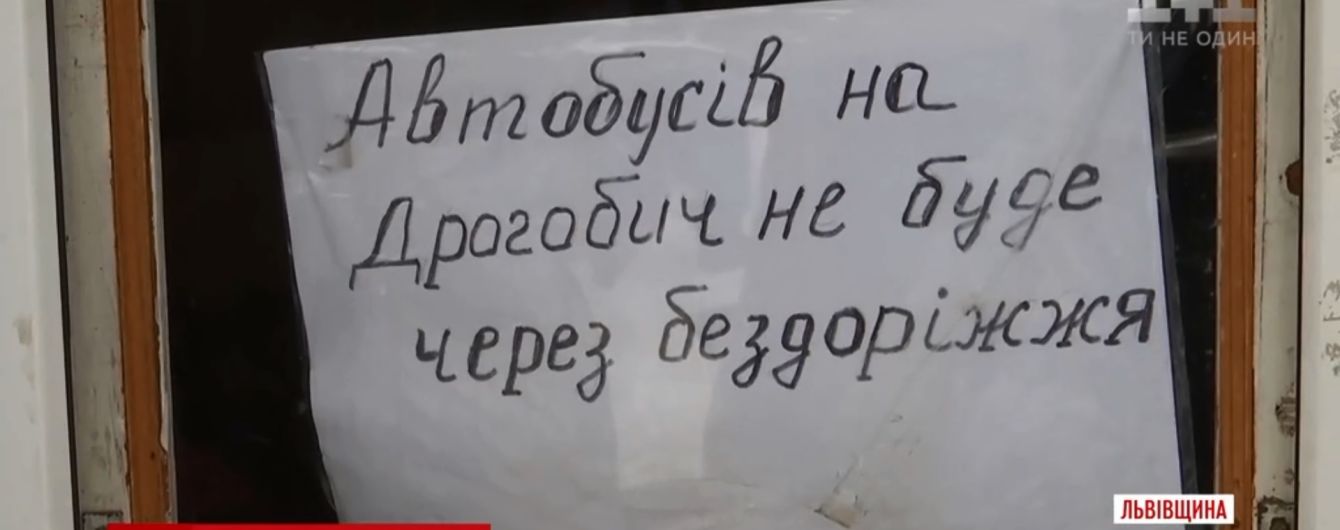 ТИ НЕ ОДИН
Автобусів на
Дрогобич не буде
через бездоріжжя
ЛЬВІВЩИНА